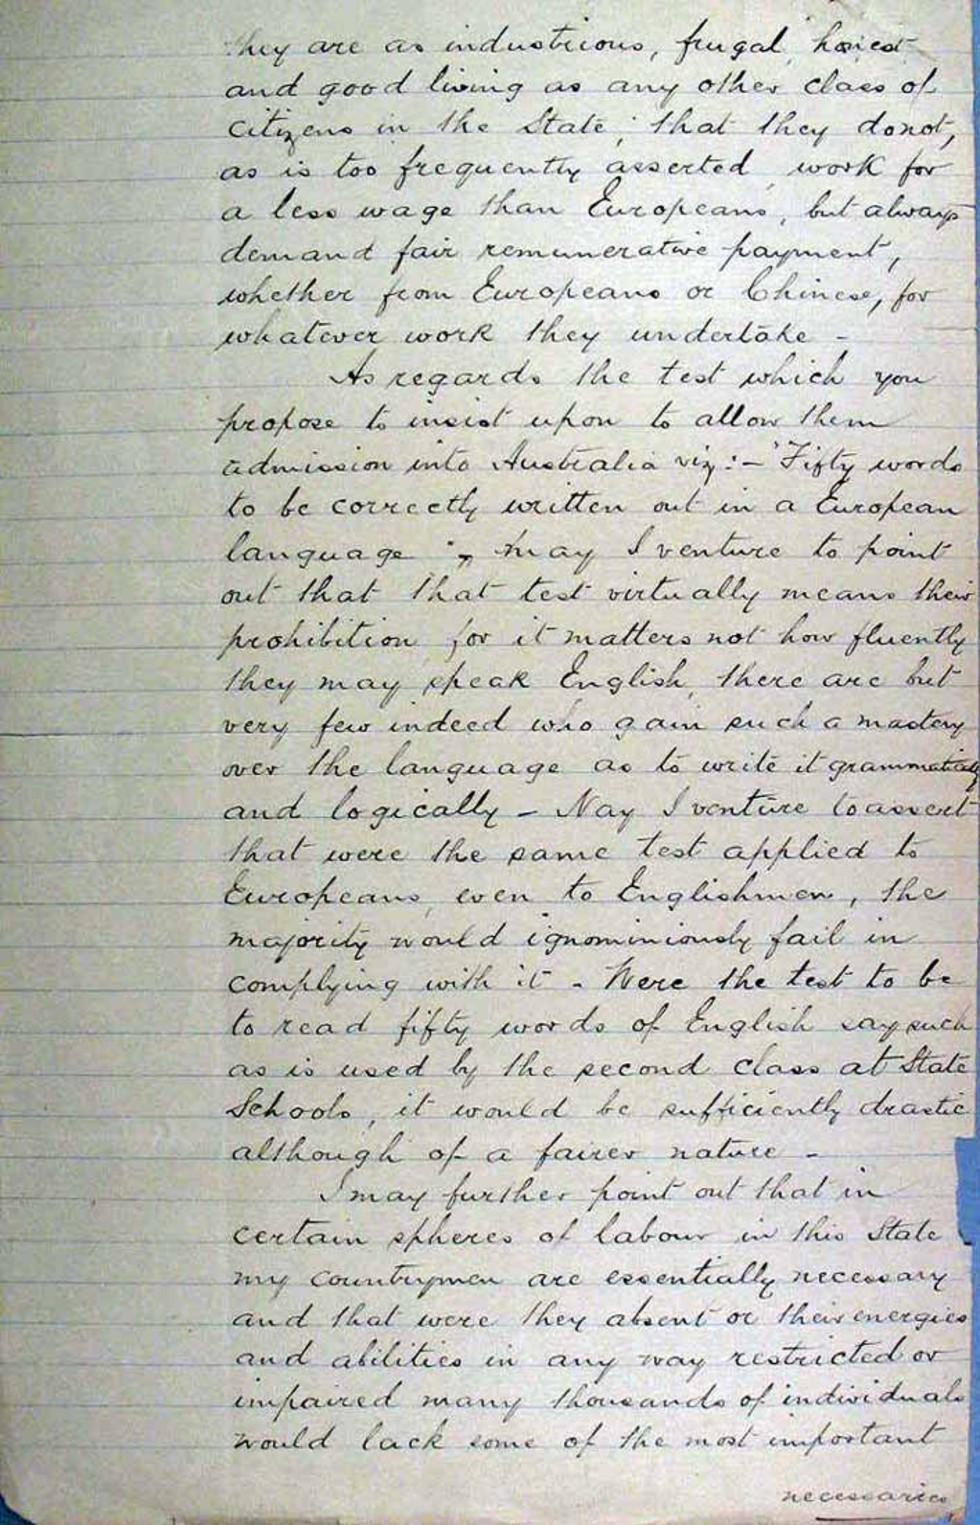 they are as industrious, frugal, honest
and good living as any other class of
citizens in the State; that they donot,
as is too frequently asserted, work for
a less wage than Europeans, but always
demand fair remunerative payment,
whether from Europeans or Chinese, for
whatever work they undertake -
As regards the test which you
propose to insist upon to allow them
admission into Australia viz:- "Fifty words
to be correctly written out in a European
language", may I venture to point
out that that test virtually means their
prohibition, for it matters not how fluently
they may speak English, there are but
very few indeed who gain such a mastery
over the language as to write it grammatically
and logically - Nay I venture to assert
that were the same test applied to
Europeans, even to Englishmen, the
majority would ignominiously fail in
complying with it - Were the test to be
to read fifty words of English say such
as is used by the second class at State
Schools, it would be sufficiently drastic
although of a fairer nature -
I may further point out that in
certain spheres of labour in this State
my countrymen are essentially necessary
and that were they absent or their energies
and abilities in any way restricted or
impaired many thousands of individuals
would lack some of the most important
necessaries